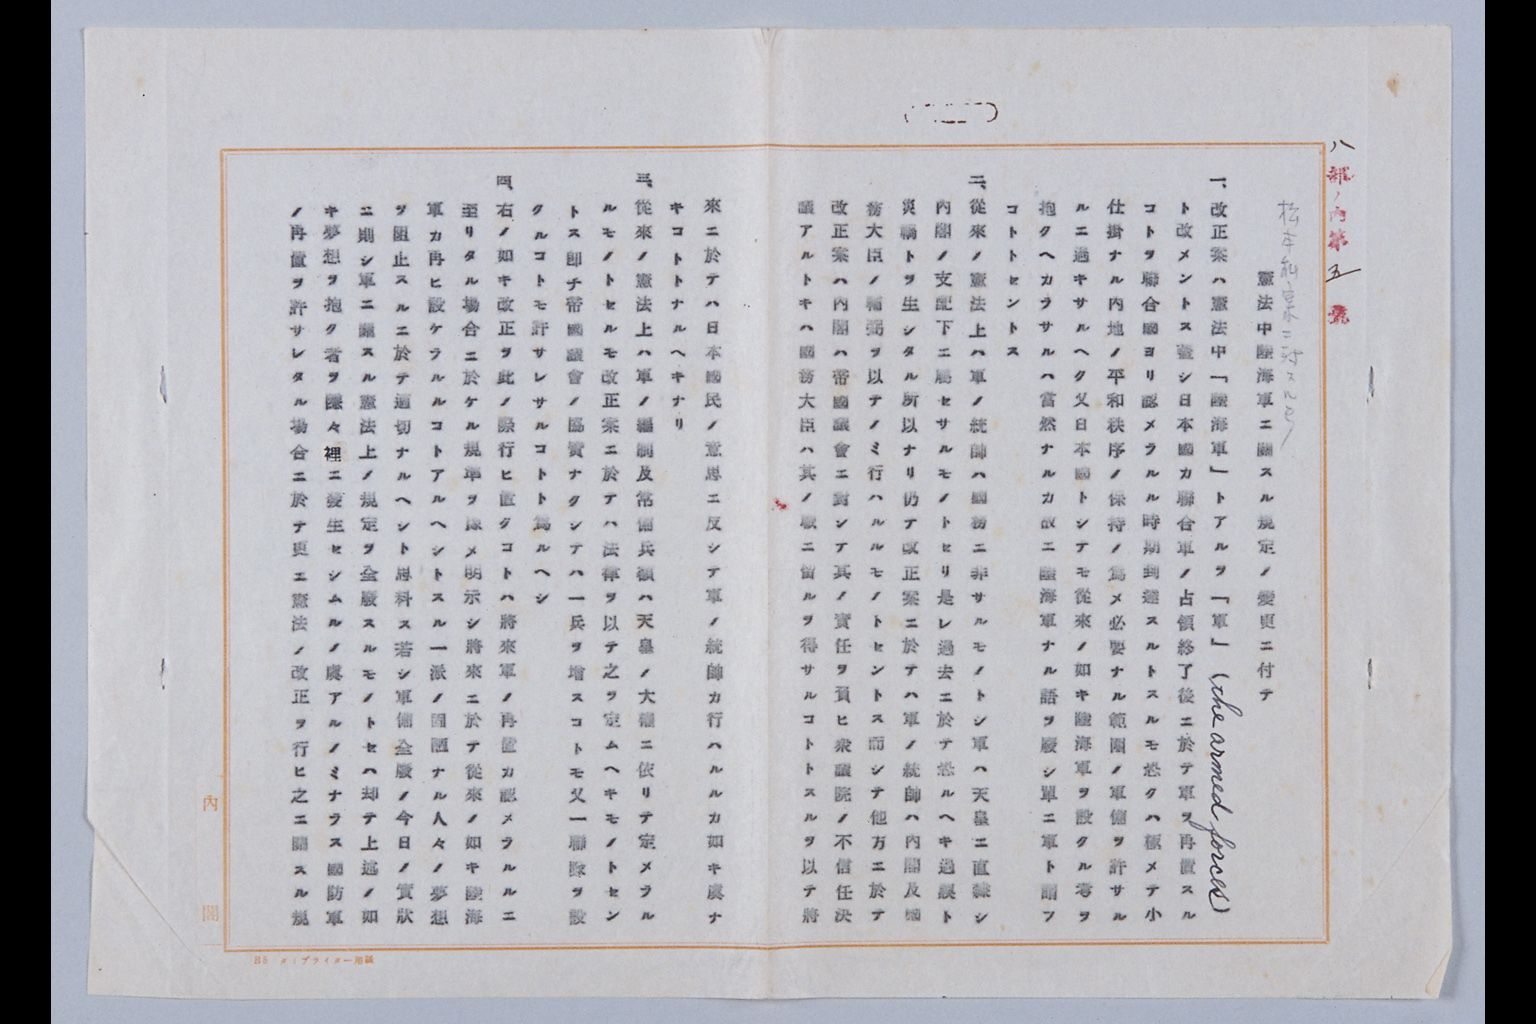 八部ノ内第五號
憲法中陸海軍ニ關スル規定ノ變更ニ付テ
一、改正案ハ憲法中「陸海軍」トアルヲ「軍」(the armed forces)
ト改メントス蓋シ日本國カ聯合軍ノ占領終了後ニ於テ軍ヲ再置スル
コトヲ聯合國ヨリ認メラルル時期到達スルトスルモ恐クハ極メテ小
仕掛ナル内地ノ平和秩序ノ保持ノ爲メ必要ナル範圍ノ軍備ヲ許サル
ルニ過キサルヘク又日本國トシテモ從來ノ如キ陸海軍ヲ設クル考ヲ
抱クヘカラサルハ當然ナルカ故ニ陸海軍ナル語ヲ廢シ單ニ軍ト謂フ
コトトセントス
二、從來ノ憲法上ハ軍ノ統帥ハ國務ニ非サルモノトシ軍ハ天皇ニ直隷シ
内閣ノ支配下ニ屬セサルモノトセリ是レ過去ニ於テ恐ルヘキ過誤ト
災禍トヲ生シタル所以ナリ仍テ改正案ニ於テハ軍ノ統帥ハ内閣及國
務大臣ノ輔弼ヲ以テノミ行ハルルモノトセントス而シテ他方ニ於テ
改正案ハ内閣ハ帝國議會ニ對シテ其ノ責任ヲ負ヒ衆議院ノ不信任決
議アルトキハ國務大臣ハ其ノ職ニ留ルヲ得サルコトトスルヲ以テ將
來ニ於テハ日本國民ノ意思ニ反シテ軍ノ統帥カ行ハルルカ如キ虞ナ
キコトトナルヘキナリ
三、從來ノ憲法上ハ軍ノ編制及常備兵額ハ天皇ノ大權ニ依リテ定メラル
ルモノトセルモ改正案ニ於テハ法律ヲ以テ之ヲ定ムヘキモノトセン
トス即チ帝國議會ノ協賛ナクシテハ一兵ヲ増スコトモ又一聯隊ヲ設
クルコトモ許サレサルコトト爲ルヘシ
四、右ノ如キ改正ヲ此ノ際行ヒ置クコトハ將來軍ノ再置カ認メラルルニ
至リタル場合ニ於ケル規準ヲ豫メ明示シ將來ニ於テ從來ノ如キ陸海
軍カ再ヒ設ケラルルコトアルヘシトスル一派ノ固陋ナル人々ノ夢想
ヲ阻止スルニ於テ適切ナルヘシト思料ス若シ軍備全廢ノ今日ノ實狀
ニ則シ軍ニ關スル憲法上ノ規定ヲ全廢スルモノトセハ却テ上述ノ如
キ夢想ヲ抱ク者ヲ隱々裡ニ發生セシムルノ虞アルノミナラス國防軍
ノ再置ヲ許サレタル場合ニ於テ更ニ憲法ノ改正ヲ行ヒ之ニ關スル規
内閣
B5 タイプライター用紙